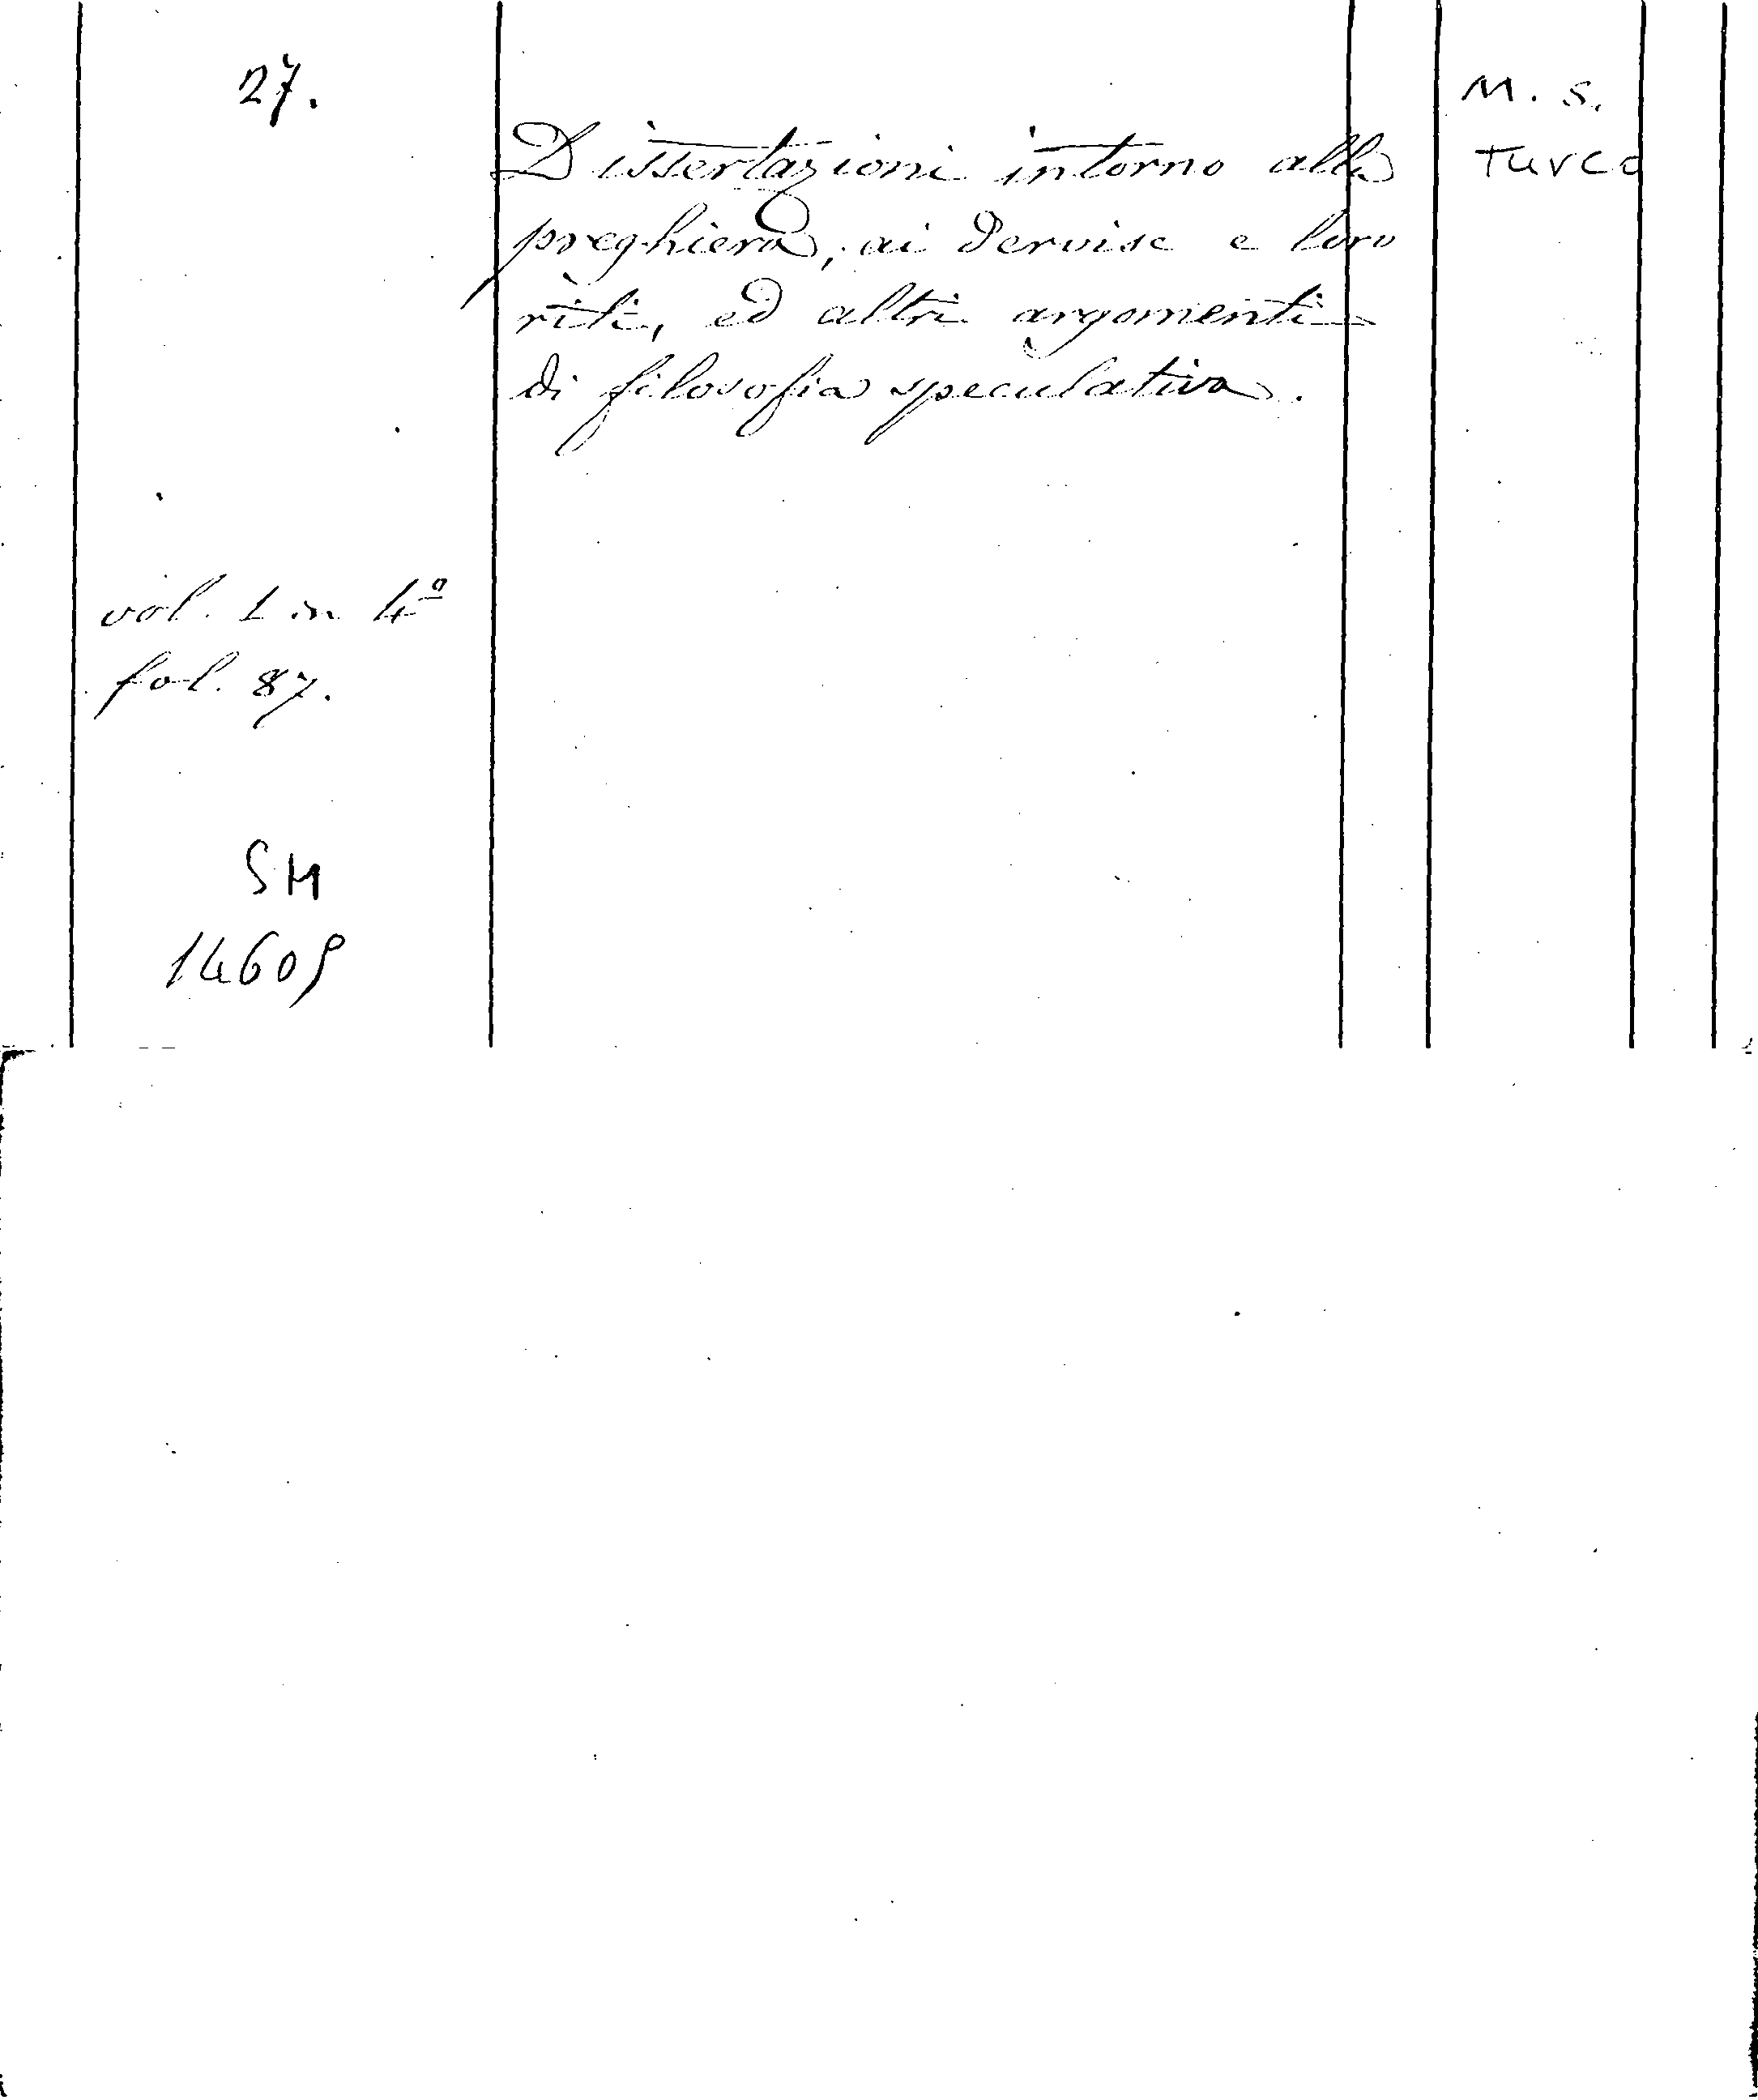 27.
M. S.
Turco
Dissertazioni intorno alla
preghiera, ai Dervise e loro
riti, ed altri argomenti
di filosofia speculativa.
vol. 1 in 4º
fol. 87.
SM
14609